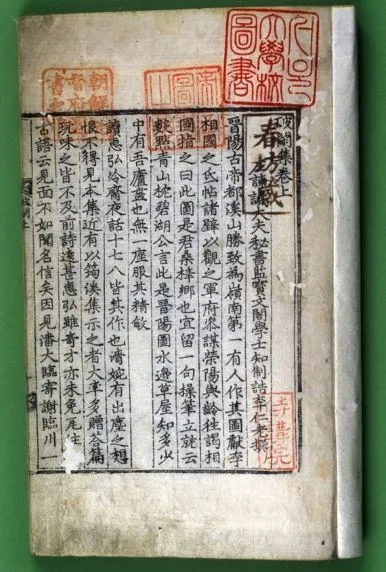 서울大學校圖書
春坊藏
破閑集卷上
諫議大夫秘書監寶文閣學士知制誥李仁老撰
晉陽古帝都溪山勝致為嶺南第一有人作其圖獻李
相國之氐帖諸壁以觀之軍府參謀榮陽與齡往謁相
國指之曰此圖是君桑梓鄉也宜留一句操筆立就云
數點青山枕碧湖公言此是晉陽圖水邊草屋知多少
中有吾廬畫也無一座服其精敏
讀惠弘冷齋夜話十七八皆其作也清婉有出塵之想
恨不得見本集近有以筠溪集示之者大率多贈答篇
玩味之皆不及前詩遠甚惠弘雖奇才亦未免瓦注
古語云見面不如聞名信矣因見潘大臨寄謝臨川一